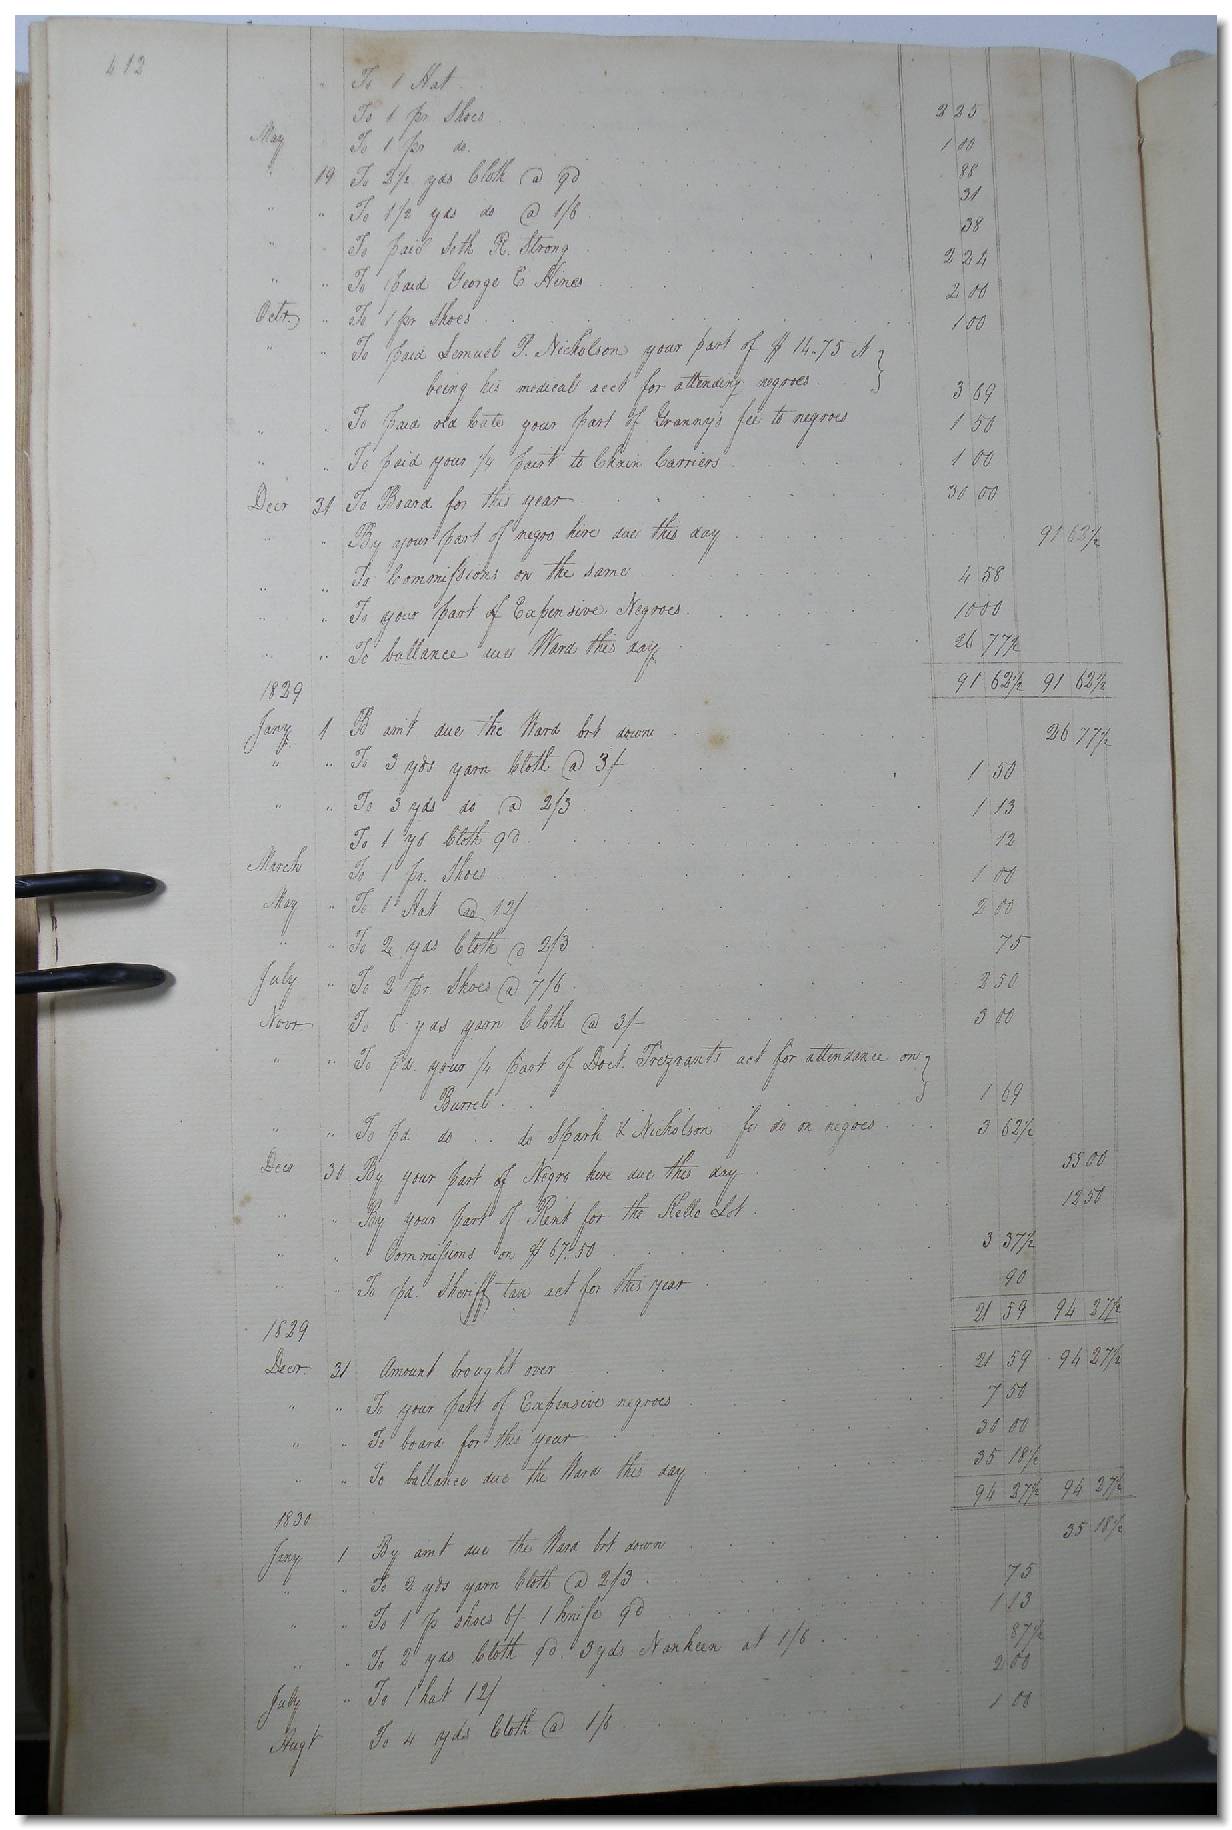 412
" To 1 Hat 2 25
To 1 pr Shoes 1 00
May To 1 pr do. 88
" 19 To 2½ yds Cloth @ 9d 31
" " To 1/2 yds do @ 1/6 38
" " To paid Seth R. Strong 2 24
" " To paid George E Hines 2 00
Octr. " To 1 pr Shoes 1 00
" " To paid Lemuel P. Nicholson your part of $14.75 it
being his medical acct for attending negroes 3 69
" " To paid old Cate your part of Granny's fee to negroes 1 50
" " To paid your 1/4 part to Chain Carriers 1 00
Decr 31 To Board for this year 30 00
" " By your part of negro hire due this day 91 62½
" " To Commissions on the same 4 58
" " To your part of Expensive Negroes 10 00
" " To ballance due Ward this day 26 77½
91 62½ 91 62½
1829
Jany 1 B amt due the Ward brt down 26 77½
" " To 3 yds yarn Cloth @ 3/ 1 50
" " To 3 yds do @ 2/3 1 13
To 1 yd Cloth 9d 12
March To 1 pr. Shoes 1 00
May " To 1 Hat @ 12/ 2 00
" " To 2 yds Cloth @ 2/3 75
July " To 2 pr Shoes @ 7/6 2 50
Novr To 6 yds yarn Cloth @ 3/ 3 00
" " To pd. your 1/4 part of Doct. Trezvants act for attendance on
Burrel 1 69
" " To pd do do Spark & Nicholson for do on negroes 3 62½
Decr 30 By your part of Negro hire due this day 55 00
" " By your part of Rent for the Kello Lot 12 50
" " Commissions on $67.50 3 37½
" " To pd. Sheriff tax act for this year 90
21 59 94 27½
1829
Decr. 31 Amount brought over 21 59 94 27½
" " To your part of Expensive negroes 7 50
" " To board for this year 30 00
" " To ballance due the Ward this day 35 18½
94 27½ 94 27½
1830
Jany 1 By amt due the Ward brt down 35 18½
" " To 2 yds yarn Cloth @ 2/3 75
" " To 1 p shoes 6/. 1 knife 9d 1 13
" " To 2 yds Cloth 9d 3 yds Nankeen at 1/6 87½
July " To 1 hat 12/ 2 00
Augt To 4 yds Cloth @ 1/6 1 00